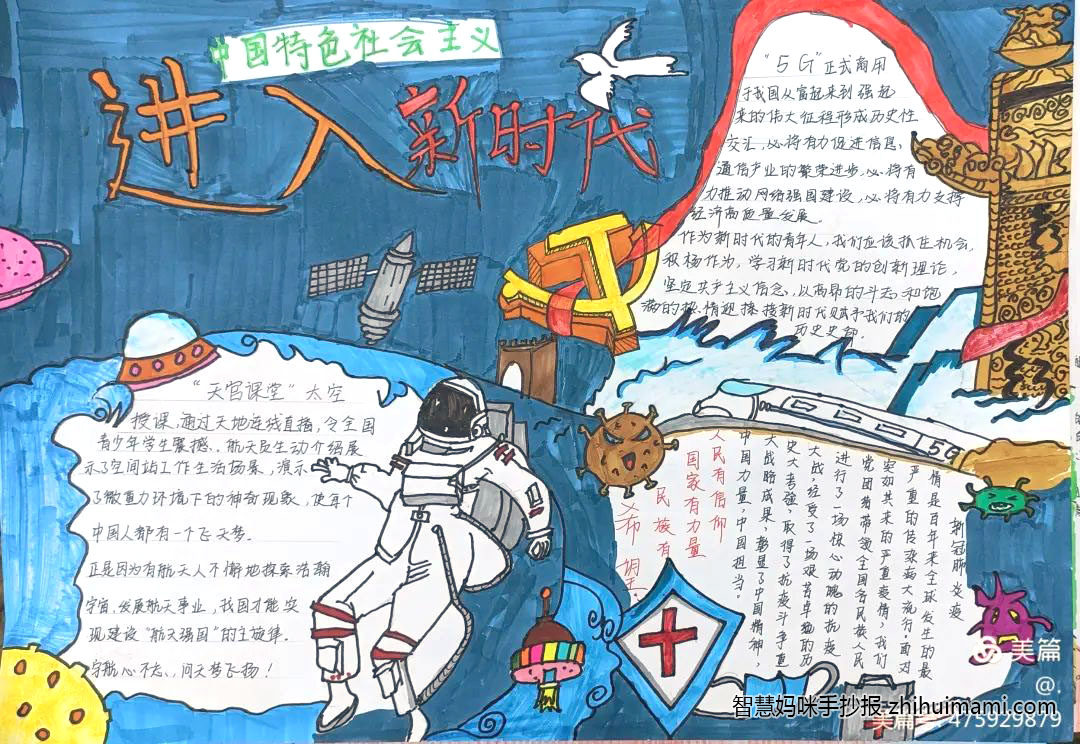 中国特色社会主义
进入新时代
"5G"正式商用
于我国从富起来到强起
来的伟大征程形成历史性
交汇,必将有力促进信息,
通信产业的繁荣进步,必将有
力推动网络强国建设,必将有力支撑
经济高质量发展。
作为新时代的青年人,我们应该抓住机会,
积极作为,学习新时代党的创新理论,
坚定共产主义信念,以高昂的斗志和饱
满的热情迎接新时代赋予我们的
历史
"天宫课堂"太空
授课,通过天地连线直播,令全国
青少年学生震撼。航天员生动介绍展
示了空间站工作生活场景,演示
了微重力环境下的神奇现象,使每个
中国人都有一个飞天梦。
正是因为有航天人不懈地探索浩瀚
宇宙,发展航天事业,我国才能实
现建设"航天强国"的主旋律。
宇航心不忘,问天梦飞扬!
5G
新冠肺炎疫
情是百年来全球发生的最
严重的传染病大流行。面对
突如其来的严重疫情,我们
党团结带领全国各民族人民
进行了一场惊心动魄的抗疫
大战,经受了一场艰苦卓绝的历
史大考验,取得了抗疫斗争重
大战略成果,彰显了中国精神,
中国力量,中国担当。
人民有信仰
国家有力量
民族有
希望.
美篇
@.
美篇号: 475929879
智慧妈咪手抄报 zhihuimami.com